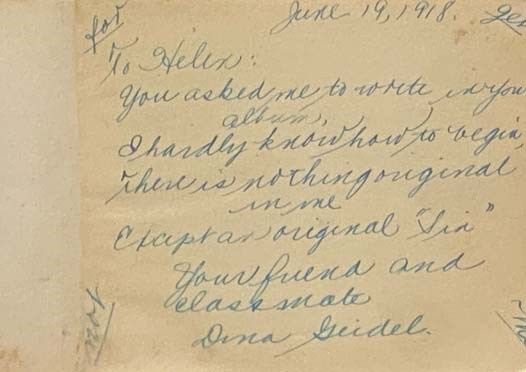 for
June 19, 1918.
To Helen:
You asked me to write in you
album,
I hardly know how to begin,
There is nothing original
in me
Except an original "Sin"
Your friend and
classmate
Dina Seidel.